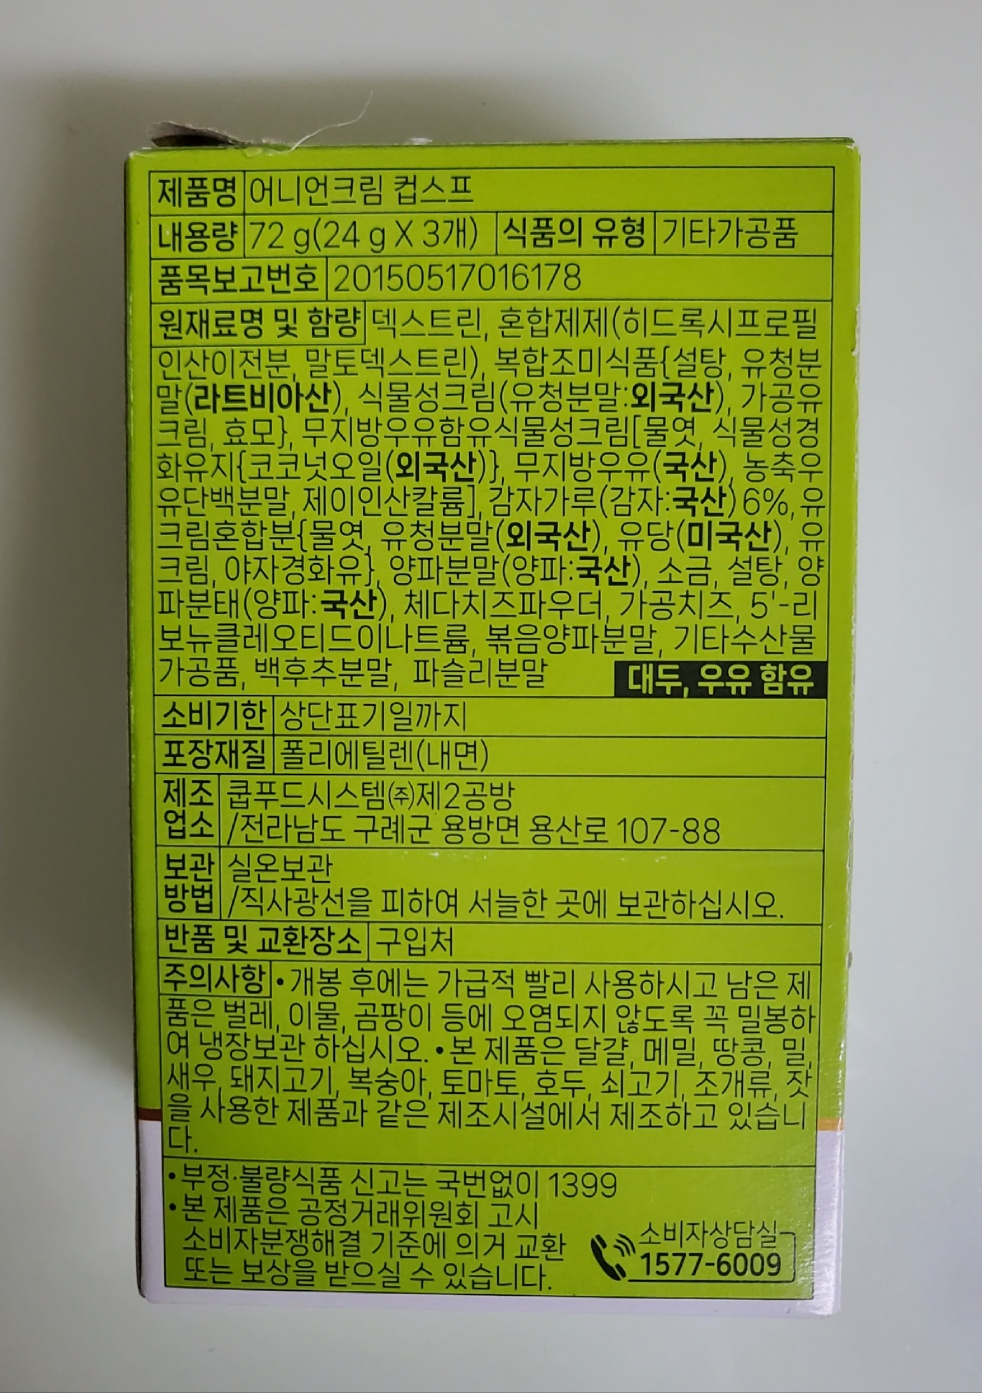 제품명 어니언크림 컵스프
내용량 72 g(24 g X 3개) 식품의 유형 기타가공품
품목보고번호 20150517016178
원재료명 및 함량 덱스트린, 혼합제제(히드록시프로필
인산이전분, 말토덱스트린), 복합조미식품{설탕, 유청분
말(라트비아산), 식물성크림(유청분말:외국산), 가공유
크림, 효모}, 무지방우유함유식물성크림[물엿, 식물성경
화유지{코코넛오일(외국산)}, 무지방우유(국산), 농축우
유단백분말, 제이인산칼륨], 감자가루(감자:국산) 6%, 유
크림혼합분{물엿, 유청분말(외국산), 유당(미국산), 유
크림, 야자경화유}, 양파분말(양파:국산), 소금, 설탕, 양
파분태(양파:국산), 체다치즈파우더, 가공치즈, 5'-리
보뉴클레오티드이나트륨, 볶음양파분말, 기타수산물
가공품, 백후추분말, 파슬리분말 대두, 우유 함유
소비기한 상단표기일까지
포장재질 폴리에틸렌(내면)
제조 쿱푸드시스템㈜제2공방
업소 /전라남도 구례군 용방면 용산로 107-88
보관 실온보관
방법 /직사광선을 피하여 서늘한 곳에 보관하십시오.
반품 및 교환장소 구입처
주의사항 • 개봉 후에는 가급적 빨리 사용하시고 남은 제
품은 벌레, 이물, 곰팡이 등에 오염되지 않도록 꼭 밀봉하
여 냉장보관 하십시오. • 본 제품은 달걀, 메밀, 땅콩, 밀,
새우, 돼지고기, 복숭아, 토마토, 호두, 쇠고기, 조개류, 잣
을 사용한 제품과 같은 제조시설에서 제조하고 있습니
다.
• 부정·불량식품 신고는 국번없이 1399
• 본 제품은 공정거래위원회 고시
소비자분쟁해결 기준에 의거 교환
또는 보상을 받으실 수 있습니다.
소비자상담실
1577-6009